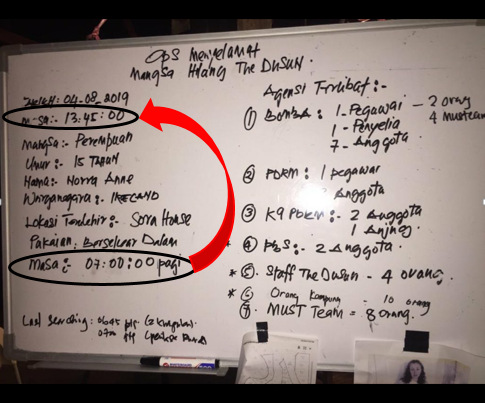 Ops Menyelamat
Mangsa Hilang The Dusun.
Tarikh: 04-08-2019
Masa:- 13:45:00
Mangsa:- Perempuan
Umur:- 15 Tahun
Nama:- Norra Anne
Warganegara:- IRELAND
Lokasi Terakhir:- Sora House
Pakaian: Berseluar Dalam
Masa:- 07:00:00 pagi
Last Searching:
Agensi Terlibat:-
① BOMBA: 1 - Pegawai - 2 orang
1 - Penyelia 4 musteam
7 - Anggota
② PDRM: 1 pegawai
Anggota
③ K9 PDRM - 2 Anggota
1 Anjing
* ④ - 2 Anggota
* ⑤. Staff The Dusun - 4 orang.
* ⑥ Orang Kampung - 10 orang
⑦. MUST Team = 8 orang.